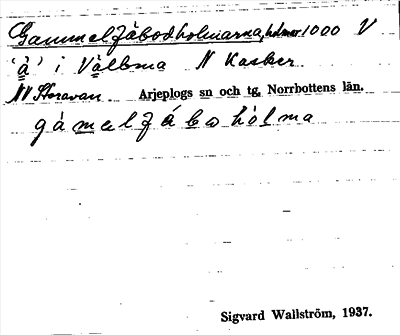 Gammelfäbodholmarna, holmar 1000 V
'å' i Vålbma N Kasker
NV Storavan Arjeplogs sn och tg, Norrbottens län.
gàmelfábohòlma
Sigvard Wallström, 1937.